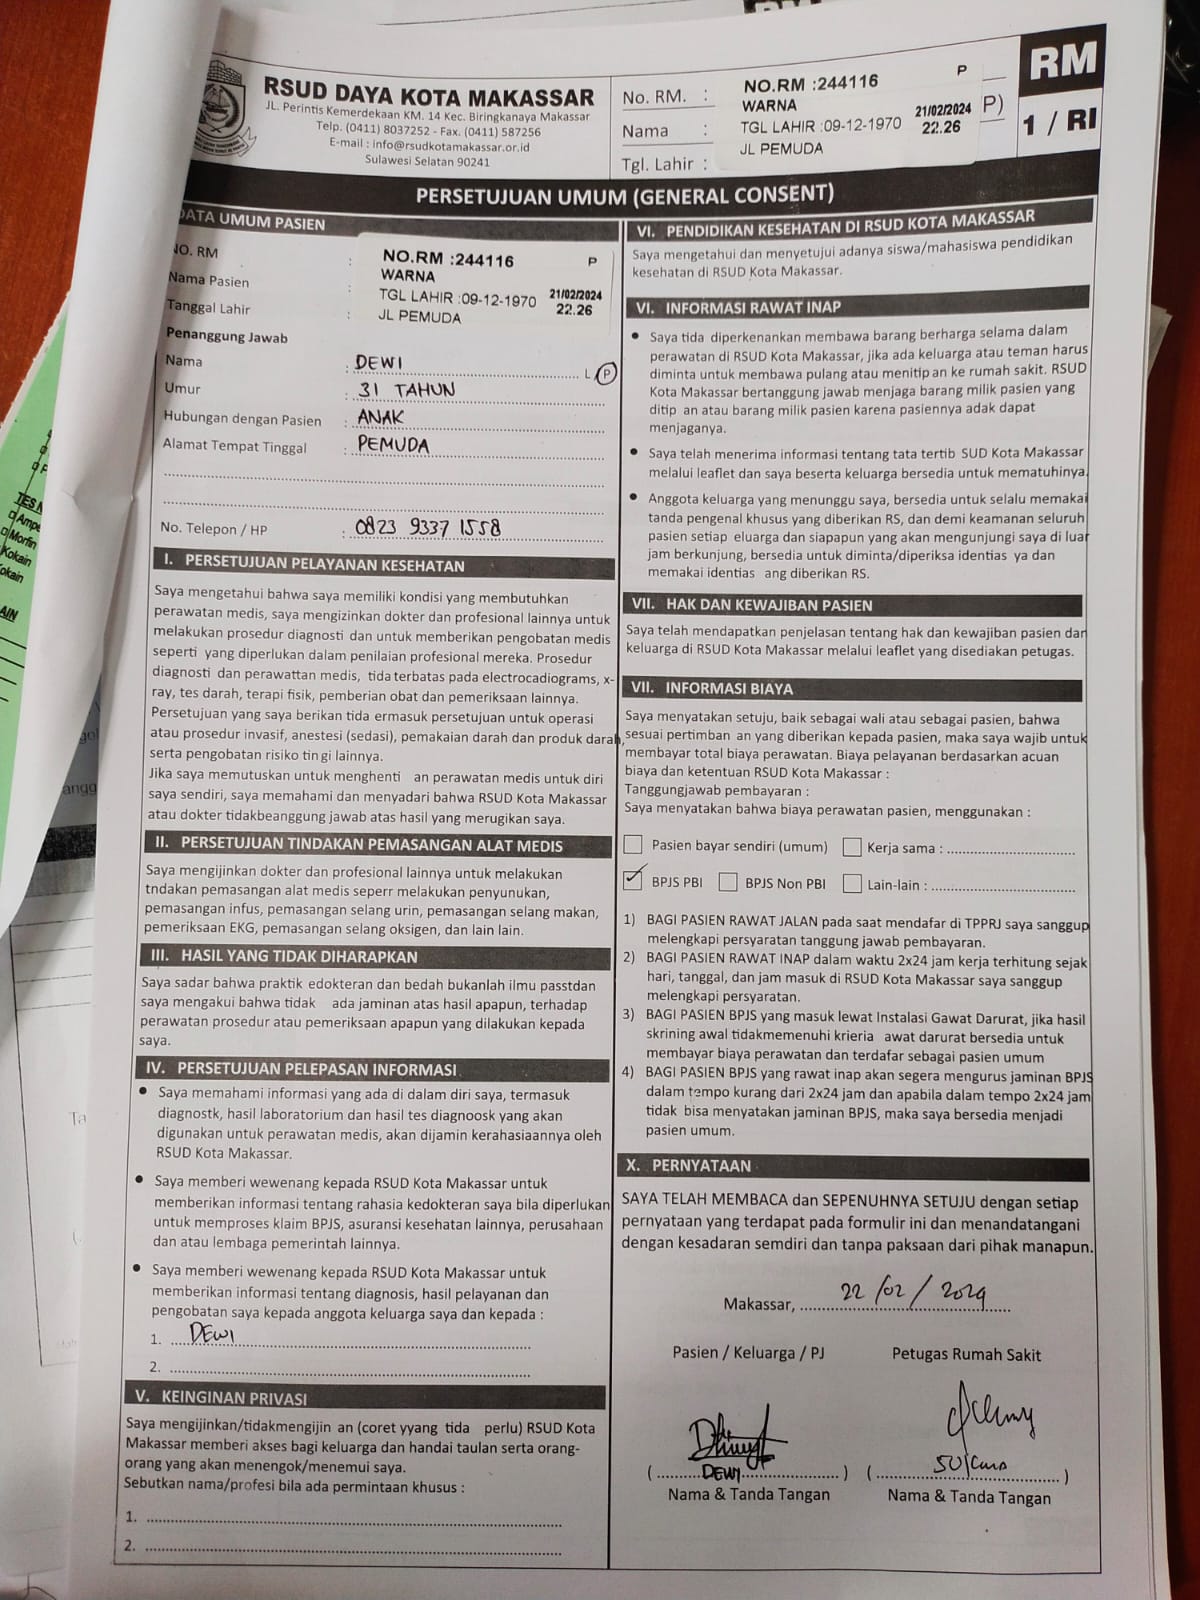 RSUD DAYA KOTA MAKASSAR
JL. Perintis Kemerdekaan KM. 14 Kec. Biringkanaya Makassar
Telp. (0411) 8037252 - Fax. (0411) 587256
E-mail : info@rsudkotamakassar.or.id
Sulawesi Selatan 90241
No. RM. :
Nama :
Tgl. Lahir :
NO.RM :244116 P
WARNA
TGL LAHIR :09-12-1970 21/02/2024 22.26
JL PEMUDA
P)
RM
1 / RI
PERSETUJUAN UMUM (GENERAL CONSENT)
DATA UMUM PASIEN
NO. RM :
Nama Pasien :
Tanggal Lahir :
NO.RM :244116 P
WARNA
TGL LAHIR :09-12-1970 21/02/2024 22.26
JL PEMUDA
Penanggung Jawab
Nama : DEWI L P
Umur : 31 TAHUN
Hubungan dengan Pasien : ANAK
Alamat Tempat Tinggal : PEMUDA
No. Telepon / HP : 0823 9337 1558
I. PERSETUJUAN PELAYANAN KESEHATAN
Saya mengetahui bahwa saya memiliki kondisi yang membutuhkan
perawatan medis, saya mengizinkan dokter dan profesional lainnya untuk
melakukan prosedur diagnosti dan untuk memberikan pengobatan medis
seperti yang diperlukan dalam penilaian profesional mereka. Prosedur
diagnosti dan perawattan medis, tida terbatas pada electrocadiograms, x-
ray, tes darah, terapi fisik, pemberian obat dan pemeriksaan lainnya.
Persetujuan yang saya berikan tida ermasuk persetujuan untuk operasi
atau prosedur invasif, anestesi (sedasi), pemakaian darah dan produk darah,
serta pengobatan risiko tin gi lainnya.
Jika saya memutuskan untuk menghenti an perawatan medis untuk diri
saya sendiri, saya memahami dan menyadari bahwa RSUD Kota Makassar
atau dokter tidakbeanggung jawab atas hasil yang merugikan saya.
II. PERSETUJUAN TINDAKAN PEMASANGAN ALAT MEDIS
Saya mengijinkan dokter dan profesional lainnya untuk melakukan
tndakan pemasangan alat medis seperr melakukan penyunukan,
pemasangan infus, pemasangan selang urin, pemasangan selang makan,
pemeriksaan EKG, pemasangan selang oksigen, dan lain lain.
III. HASIL YANG TIDAK DIHARAPKAN
Saya sadar bahwa praktik edokteran dan bedah bukanlah ilmu passtdan
saya mengakui bahwa tidak ada jaminan atas hasil apapun, terhadap
perawatan prosedur atau pemeriksaan apapun yang dilakukan kepada
saya.
IV. PERSETUJUAN PELEPASAN INFORMASI
• Saya memahami informasi yang ada di dalam diri saya, termasuk
diagnostk, hasil laboratorium dan hasil tes diagnoosk yang akan
digunakan untuk perawatan medis, akan dijamin kerahasiaannya oleh
RSUD Kota Makassar.
• Saya memberi wewenang kepada RSUD Kota Makassar untuk
memberikan informasi tentang rahasia kedokteran saya bila diperlukan
untuk memproses klaim BPJS, asuransi kesehatan lainnya, perusahaan
dan atau lembaga pemerintah lainnya.
• Saya memberi wewenang kepada RSUD Kota Makassar untuk
memberikan informasi tentang diagnosis, hasil pelayanan dan
pengobatan saya kepada anggota keluarga saya dan kepada :
1. DEWI
2.
V. KEINGINAN PRIVASI
Saya mengijinkan/tidakmengijin an (coret yyang tida perlu) RSUD Kota
Makassar memberi akses bagi keluarga dan handai taulan serta orang-
orang yang akan menengok/menemui saya.
Sebutkan nama/profesi bila ada permintaan khusus :
1.
2.
VI. PENDIDIKAN KESEHATAN DI RSUD KOTA MAKASSAR
Saya mengetahui dan menyetujui adanya siswa/mahasiswa pendidikan
kesehatan di RSUD Kota Makassar.
VI. INFORMASI RAWAT INAP
• Saya tida diperkenankan membawa barang berharga selama dalam
perawatan di RSUD Kota Makassar, jika ada keluarga atau teman harus
diminta untuk membawa pulang atau menitip an ke rumah sakit. RSUD
Kota Makassar bertanggung jawab menjaga barang milik pasien yang
ditip an atau barang milik pasien karena pasiennya adak dapat
menjaganya.
• Saya telah menerima informasi tentang tata tertib SUD Kota Makassar
melalui leaflet dan saya beserta keluarga bersedia untuk mematuhinya.
• Anggota keluarga yang menunggu saya, bersedia untuk selalu memakai
tanda pengenal khusus yang diberikan RS, dan demi keamanan seluruh
pasien setiap eluarga dan siapapun yang akan mengunjungi saya di luar
jam berkunjung, bersedia untuk diminta/diperiksa identias ya dan
memakai identias ang diberikan RS.
VII. HAK DAN KEWAJIBAN PASIEN
Saya telah mendapatkan penjelasan tentang hak dan kewajiban pasien dan
keluarga di RSUD Kota Makassar melalui leaflet yang disediakan petugas.
VII. INFORMASI BIAYA
Saya menyatakan setuju, baik sebagai wali atau sebagai pasien, bahwa
sesuai pertimban an yang diberikan kepada pasien, maka saya wajib untuk
membayar total biaya perawatan. Biaya pelayanan berdasarkan acuan
biaya dan ketentuan RSUD Kota Makassar :
Tanggungjawab pembayaran :
Saya menyatakan bahwa biaya perawatan pasien, menggunakan :
Pasien bayar sendiri (umum) Kerja sama :
✓ BPJS PBI BPJS Non PBI Lain-lain :
1) BAGI PASIEN RAWAT JALAN pada saat mendafar di TPPRJ saya sanggup
melengkapi persyaratan tanggung jawab pembayaran.
2) BAGI PASIEN RAWAT INAP dalam waktu 2x24 jam kerja terhitung sejak
hari, tanggal, dan jam masuk di RSUD Kota Makassar saya sanggup
melengkapi persyaratan.
3) BAGI PASIEN BPJS yang masuk lewat Instalasi Gawat Darurat, jika hasil
skrining awal tidakmemenuhi krieria awat darurat bersedia untuk
membayar biaya perawatan dan terdafar sebagai pasien umum
4) BAGI PASIEN BPJS yang rawat inap akan segera mengurus jaminan BPJS
dalam tempo kurang dari 2x24 jam dan apabila dalam tempo 2x24 jam
tidak bisa menyatakan jaminan BPJS, maka saya bersedia menjadi
pasien umum.
X. PERNYATAAN
SAYA TELAH MEMBACA dan SEPENUHNYA SETUJU dengan setiap
pernyataan yang terdapat pada formulir ini dan menandatangani
dengan kesadaran semdiri dan tanpa paksaan dari pihak manapun.
Makassar, 22/02/2024
Pasien / Keluarga / PJ Petugas Rumah Sakit
( DEWI ) ( )
Nama & Tanda Tangan Nama & Tanda Tangan
TES
Morfin
Kokain